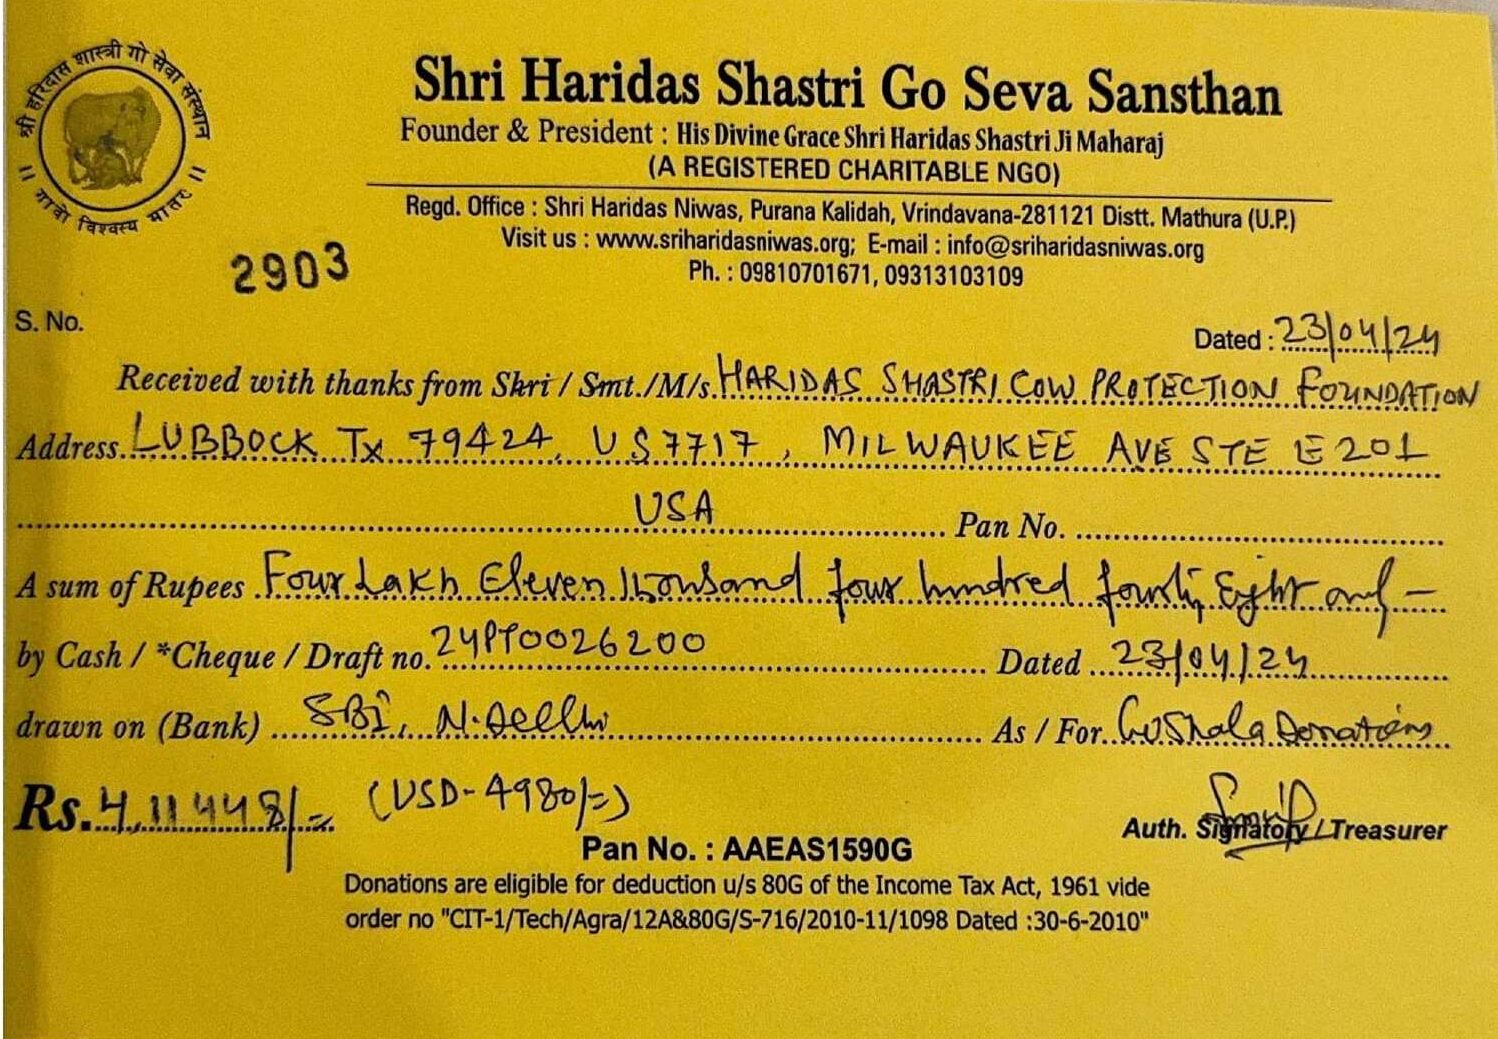 श्री हरिदास शास्त्री गो सेवा संस्थान
|| गावो विश्वस्य मातरः ||
Shri Haridas Shastri Go Seva Sansthan
Founder & President : His Divine Grace Shri Haridas Shastri Ji Maharaj
(A REGISTERED CHARITABLE NGO)
Regd. Office : Shri Haridas Niwas, Purana Kalidah, Vrindavana-281121 Distt. Mathura (U.P.)
Visit us : www.sriharidasniwas.org; E-mail : info@sriharidasniwas.org
Ph. : 09810701671, 09313103109
2903
S. No.
Dated : 23/04/24
Received with thanks from Shri / Smt./M/s. HARIDAS SHASTRI COW PROTECTION FOUNDATION
Address. LUBBOCK Tx 79424, US 7717, MILWAUKEE AVE STE E201
USA Pan No.
A sum of Rupees Four Lakh Eleven Thousand four hundred fourty Eight only -
by Cash / *Cheque / Draft no. 24PT0026200 Dated 23/04/24
drawn on (Bank) SBI, N. Delhi As / For Goshala Donations
Rs. 4,11448/= (USD-4980/=)
Auth. Signatory / Treasurer
Pan No. : AAEAS1590G
Donations are eligible for deduction u/s 80G of the Income Tax Act, 1961 vide
order no "CIT-1/Tech/Agra/12A&80G/S-716/2010-11/1098 Dated :30-6-2010"